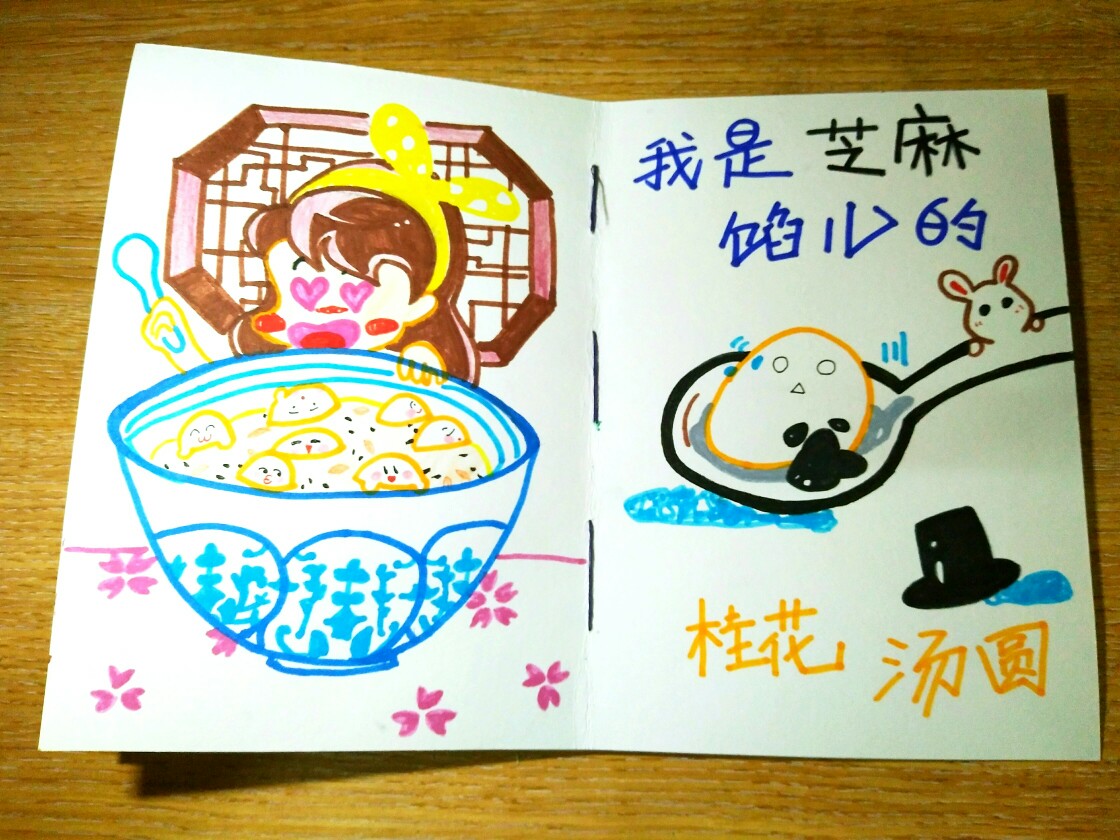 我是芝麻
馅儿的
桂花汤圆